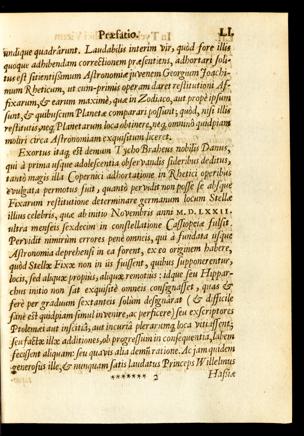 Præfatio. LI.
undique quadrârunt. Laudabilis interim vir, quòd fore illis
quoque adhibendam correctionem præsentiens, adhortari soli-
tus est sitientissimum Astronomiæ juvenem Georgium Joachi-
mum Rheticum, ut cum-primis operam daret restitutioni Af-
fixarum, & earum maximè, quæ in Zodiaco, aut propè ipsum
sunt, & quibuscum Planetæ comparari possunt; quòd, nisi illis
restitutis, neq; Planetarum loca obtinere, neq; omninò quidpiam
moliri circa Astronomiam exquisitum liceret.
Exortus itaq; est demùm Tycho Braheus nobilis Danus,
qui à prima usque adolescentia observandis sideribus deditus,
tantò magis illa Copernici adhortatione in Rhetici operibus
evulgata permotus fuit, quantò pervidit non posse se absque
Fixarum restitutione determinare germanum locum Stellæ
illius celebris, quæ ab initio Novembris anni M. D. LXXII.
ultra menseis sexdecim in constellatione Cassiopeiæ fulsit.
Pervidit nimirùm errores penè omneis, qui à fundata usque
Astronomia deprehensi in ea forent, ex eo originem habere,
quòd Stellæ Fixæ non in iis fuissent, quibus supponerentur,
locis, sed aliquæ propiùs, aliquæ remotiùs: idque seu Hippar-
chus initio non sat exquisitè omneis consignasset, quas &
ferè per graduum sextanteis solùm designârat (& difficile
sanè est quidpiam simul invenire, ac perficere) seu exscriptores
Ptolemæi aut inscitiâ, aut incuriâ plerarumq; loca vitiassent;
seu factæ illæ additiones, ob progressum in consequentia, labem
fecissent aliquam: seu quavis alia demùm ratione. Ac jam quidem
generosus ille, & nunquam satis laudatus Princeps Willelmus
******* 2 Hassiæ